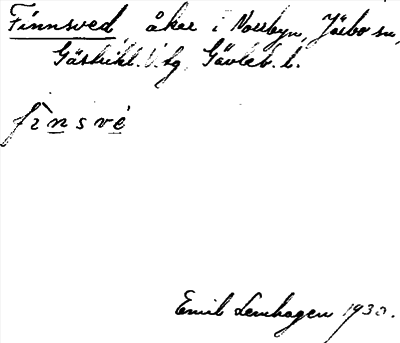 Finnsved, åker i Norrbyn, Järbo sn,
Gästrikl. V. tg, Gävleb. l.
finsve
Emil Lenhagen 1930.